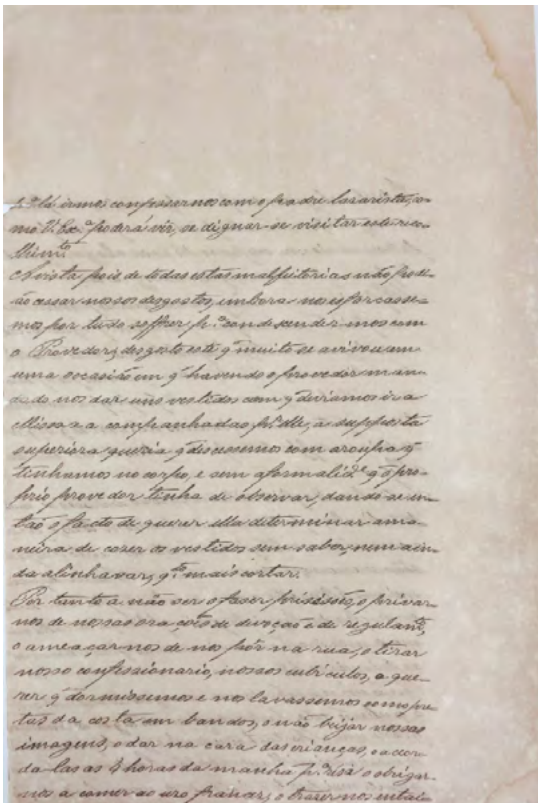 p.ª lá irmos confessarnos com o padre lasarista, co-
mo V. Ex.ª poderá vêr, se dignar-se visitar este reco-
lhimt.º
Á vista pois de todas estas malfeitorias não podi-
ão cessar nossos desgostos, embora nos esforcasse-
mos por tudo soffrer, p.ª condescender-mos com
o Provedor; desgosto este q̃ muito se avivou em
uma occasião em q̃ havendo o provedor man-
dado nos dar uns vestidos com q̃ deviamos ir a
Missa a companhadas por elle, a supposta
superiora queria q̃ descessemos com a roupa q̃
tinhamos no corpo, e sem a formalid.e q̃ o pro-
prio provedor tinha de observar, dando-se en-
tão o facto de querer ella determinar a ma-
neira de cozer os vestidos sem saber, nem ain-
da alinhavar, q.to mais cortar.
Por tanto a não ser o faser prisisões, o privar-
nos de nossas orações de devoção e de regulamt.º,
o ameaçar-nos de nos pôr na rua, o tirar
nosso confessionario, nossos cubiculos, o que-
rer q̃ dormissemos e nos lavassemos como pre-
tas da costa em bandos, o não beijar nossas
imagens, o dar na cara das crianças, o acor-
da-las as 4 horas da manhã p.ª risa o obrigar-
nos a comer ao uso